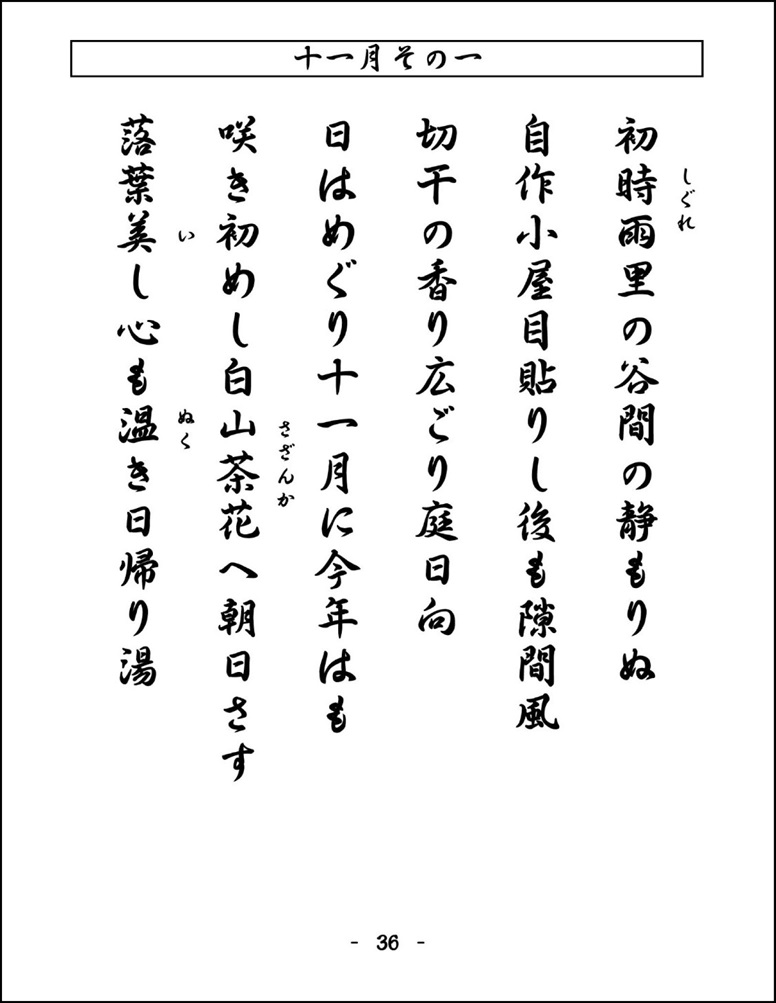 十一月その一
初時雨里の谷間の静もりぬ
しぐれ
自作小屋目貼りし後も隙間風
切干の香り広ごり庭日向
日はめぐり十一月に今年はも
咲き初めし白山茶花へ朝日さす
さざんか
落葉美し心も温き日帰り湯
い
ぬく
- 36 -